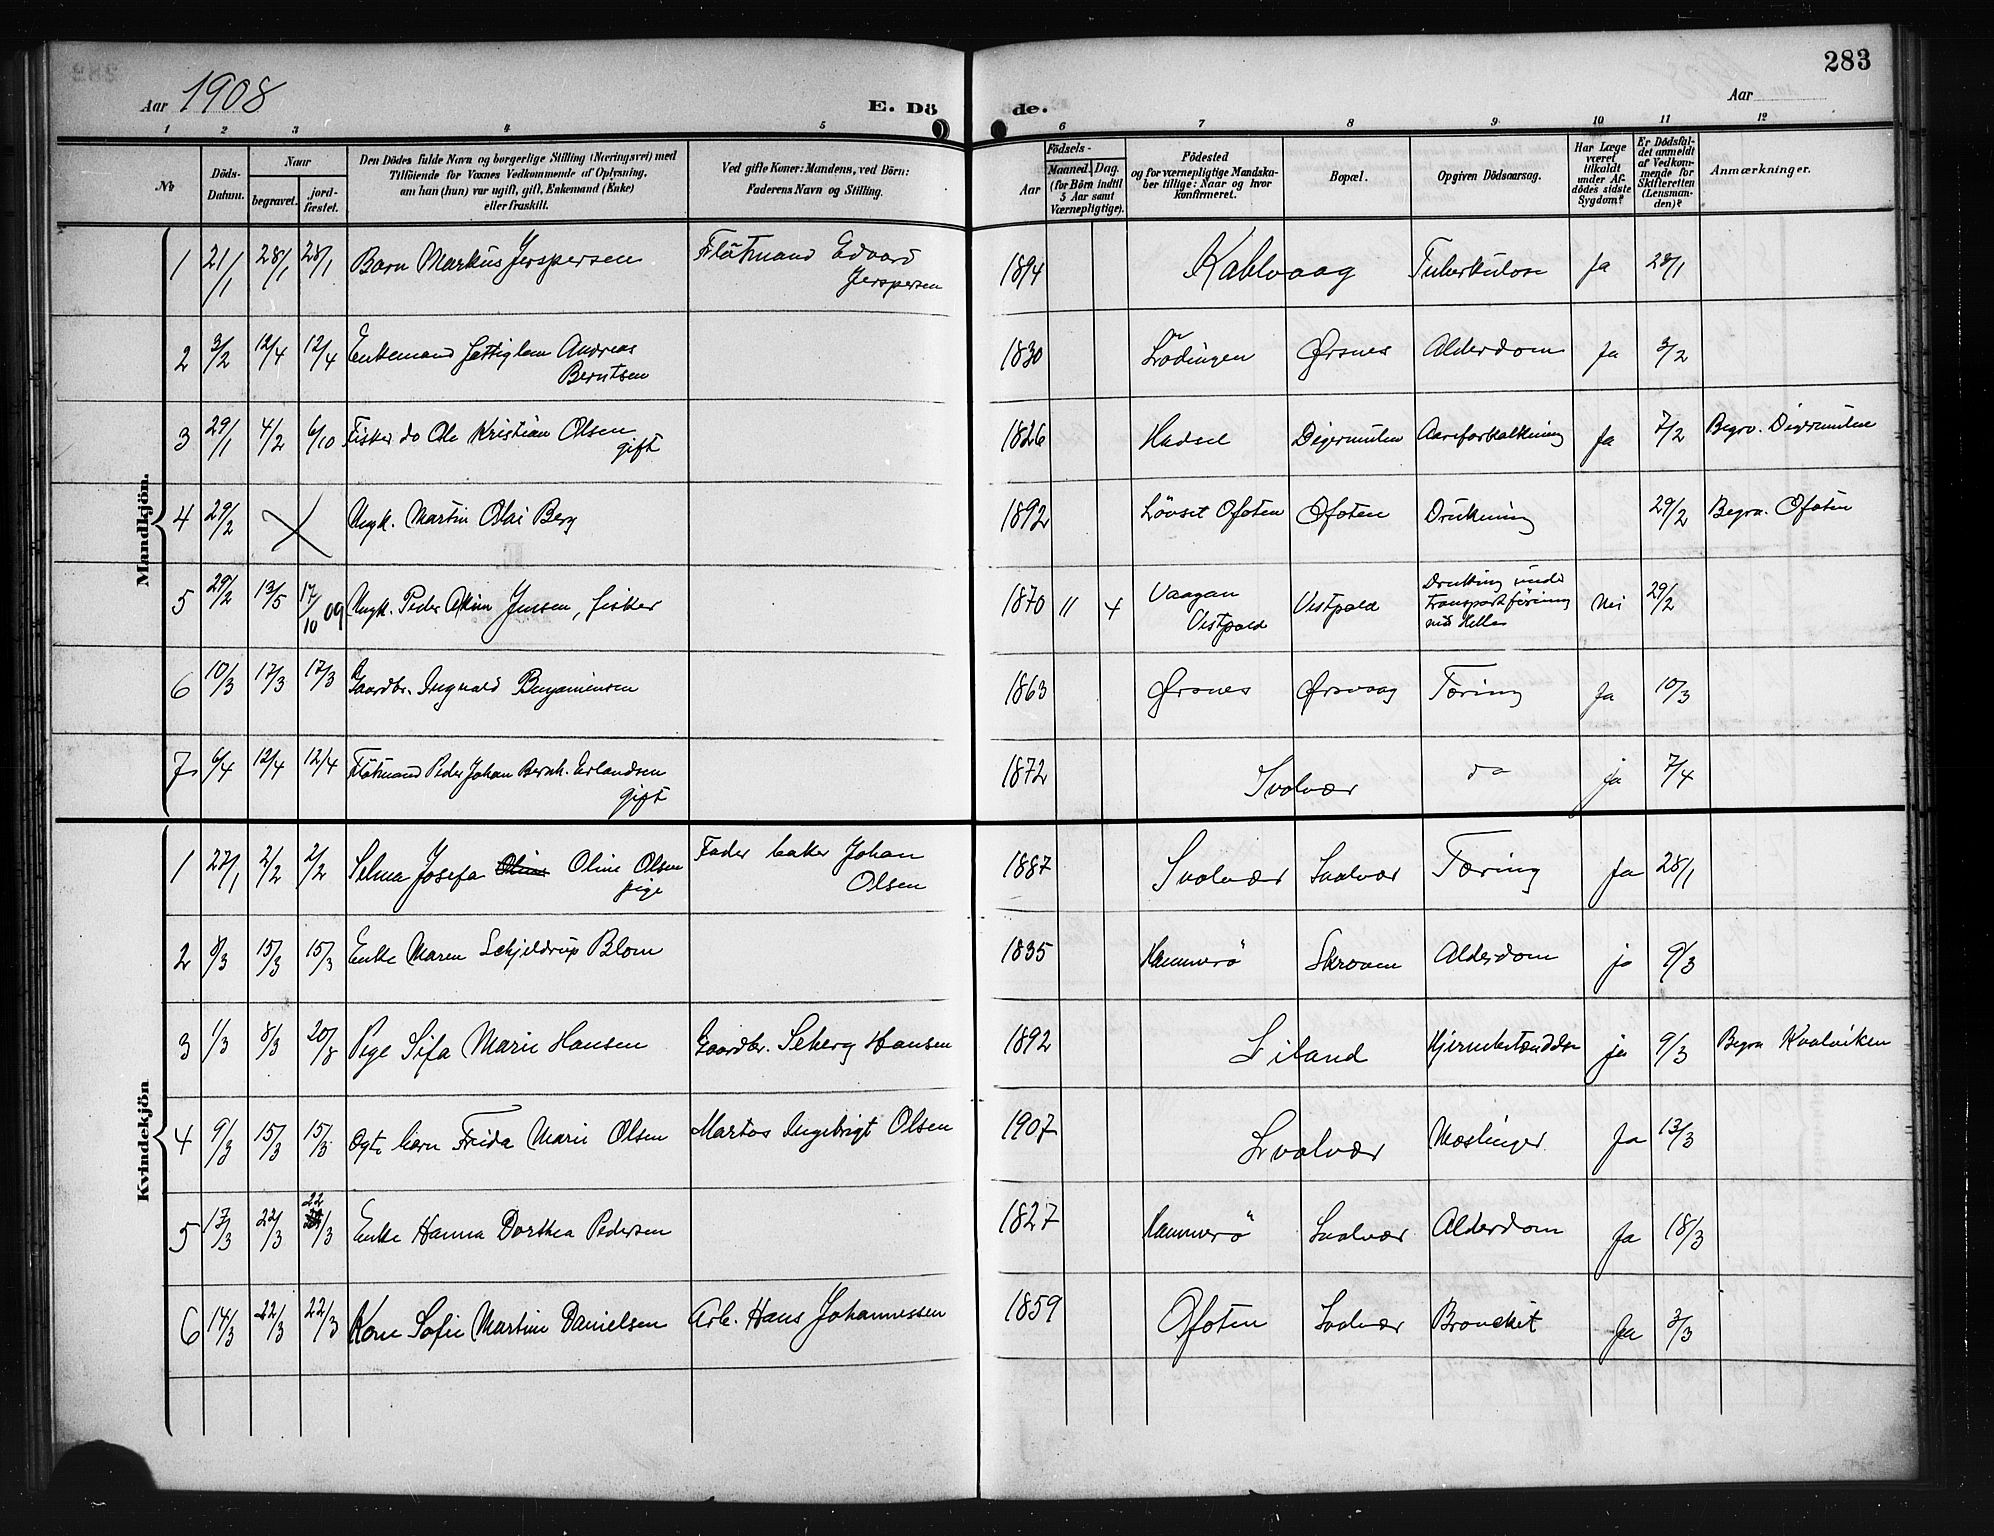 283
Aar 1908
E. Dö
de.
Aar
1 2 3 4 5 6 7 8 9 10 11 12
No
Döds-
Datum.
Naar
begravet.
jord-
fæstet.
Den Dödes fulde Navn og borgerlige Stilling (Næringsvei) med
Tilföiende for Voxnes Vedkommende af Oplysning,
om han (hun) var ugift, gift, Enkemand (Enke)
eller fraskilt.
Ved gifte Koner: Mandens, ved Börn:
Faderens Navn og Stilling.
Födsels-
Aar
Maaned. Dag.
(for Börn indtil
5 Aar samt
Værnepligtige).
Födested
og for værnepligtige Mandska-
ber tillige: Naar og hvor
konfirmeret.
Bopæl.
Opgiven Dödsaarsag.
Har Læge
været
tilkaldt
under Af-
dödes sidste
Sygdom?
Er Dödsfal-
det anmeldt
af Vedkom-
mende for
Skifteretten
(Lensman-
den)?
Anmærkninger.
Mandkjön.
1 21/1 28/1 28/1 Barn Markus Jerspersen Flötmand Edvard
Jerspersen 1894 Kablvaag Tuberkulose Ja 28/1
2 3/2 12/4 12/4 Enkemand fattiglem Andreas
Berntsen 1830 Lödingen Ørsnes Alderdom Ja 3/2
3 29/1 4/2 6/10 Fisker do Ole Kristian Olsen
gift 1826 Hadsel Digermulen Aareforkalkning Ja 7/2 Begrv. Digermulen
4 29/2 X Ungk. Martin Olai Berg 1892 Lövset Ofoten Ofoten Drukning 29/2 Begra. Ofoten
5 29/2 13/5 17/10 09 Ungk. Peder Jensen, fisker 1870 11 4 Vaagan
Vestpold Vestpold Drukning under
Transportföring
ved Hella Nei 29/2
6 10/3 17/3 17/3 Gaardbr. Ingvald Benjaminsen 1863 Ørsnes Ørsvaag Tæring Ja 10/3
7 6/4 12/4 12/4 Flötmand Peder Johan Bernh. Erlandsen
gift 1872 Svolvær do ja 7/4
Kvindekjön
1 27/1 2/2 2/2 Selma Josefa Oline Olsen
pige Fader baker Johan
Olsen 1887 Svolvær Svolvær Tæring Ja 28/1
2 8/3 15/3 15/3 Enke Maren Schjeldrup Blom 1835 Hammerö Skroven Alderdom ja 9/3
3 1/3 8/3 20/8 Pige Sifa Marie Hansen Gaardbr. Seberg Hansen 1892 Liland Hjernebetændelse ja 9/3 Begra Kvalviken
4 9/3 15/3 15/3 Ægte barn Frida Marie Olsen Martos Ingebrigt Olsen 1907 Svolvær Mæslinger Ja 13/3
5 17/3 22/3 22/3 Enke Hanna Dorthea Pedersen 1827 Hammerö Svolvær Alderdom Ja 18/3
6 14/3 22/3 22/3 Kone Sofie Martine Danielsen Arb. Hans Johannessen 1859 Ofoten Svolvær Bronchit Ja 3/3